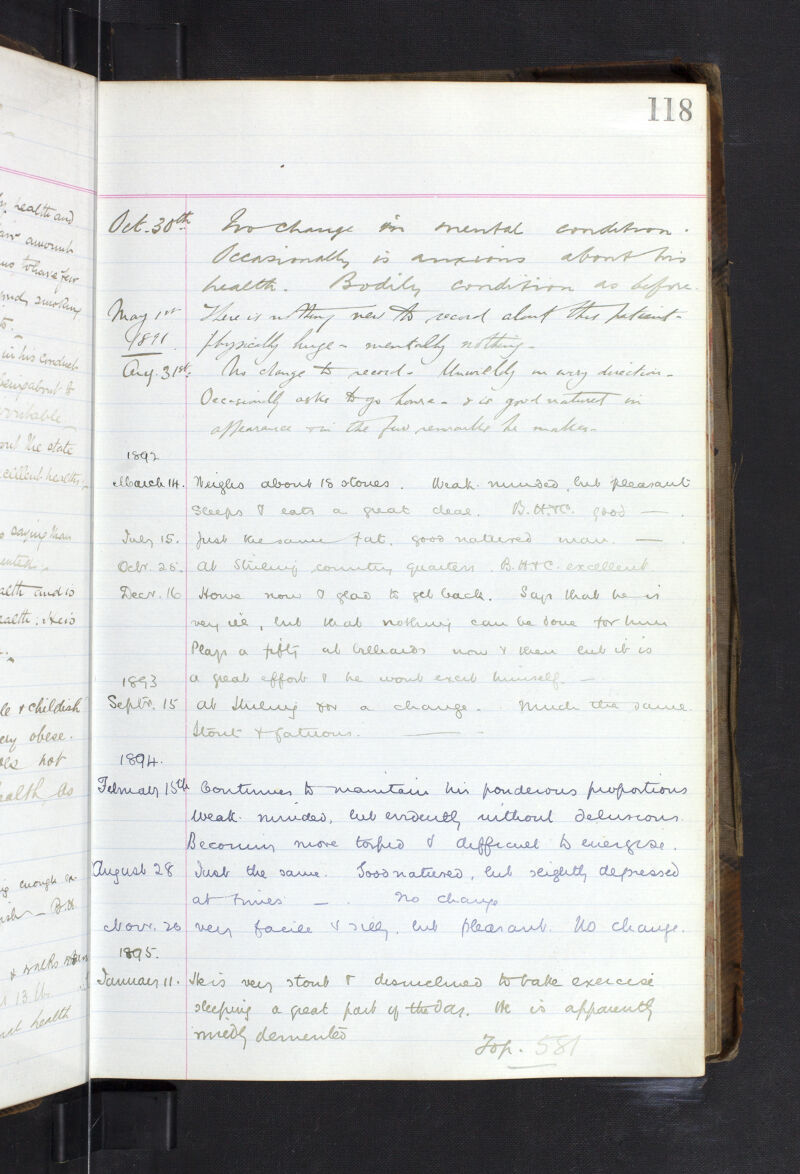 118
Oct. 30th No change in mental condition.
Occasionally is anxious about his
health. Bodily condition as before.
May 1st There is nothing new to record about this patient -
1891 physically huge - mentally nothing -
Aug. 31st: No change to record - Unwieldy in every direction -
Occasionally asks to go home - & is good natured in
appearance & in the few remarks he makes -
1892
March 14. Weighs about 18 stones. Weak-minded, but pleasant
Sleeps & eats a great deal. B.H.&C. good — .
July 15. Just the same fat, good natured man. — .
Octr. 25. At country quarters. B.H&C. excellent
Decr. 16 Home now & glad to get back. Says that he is
very ill, but that nothing can be done for him
Plays a fifty at billiards now & then but it is
1893 a great effort & he wont exert himself. —
Septr. 15 At for a change. Much the same.
Stout & fatuous. ———
1894.
February 15th Continues to maintain his ponderous proportions
Weak-minded, but evidently without delusions.
Becoming more torpid & difficult to energise.
August 28 Just the same. Good natured, but slightly depressed
at times — . No change
Novr. 20 very facile & silly, but pleasant. No change.
1895.
January 11. He is very stout & disinclined to take exercise
sleeping a great part of the day. He is apparently
mildly demented
Fop. 581
health and
amount
to have a few
smoking
in his conduct
being about to
out the state
excellent health
saying than
health and is
health. He is
& childish
very obese.
does not
health, as
enough
& walks
13 lb.
health